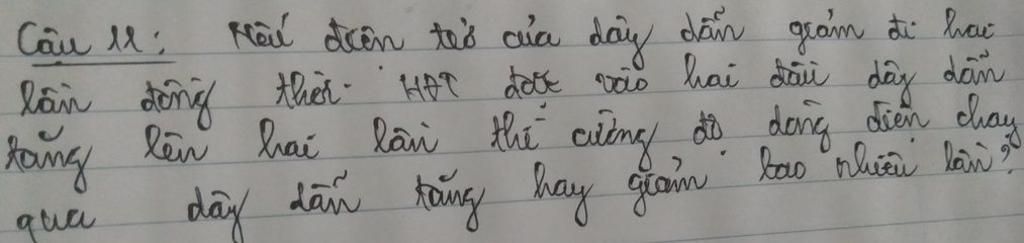 Câu 11: Nếu điện trở của dây dẫn giảm đi hai
lần đồng thời HĐT đặt vào hai đầu dây dẫn
tăng lên hai lần thì cường độ dòng điện chạy
qua dây dẫn tăng hay giảm bao nhiêu lần?